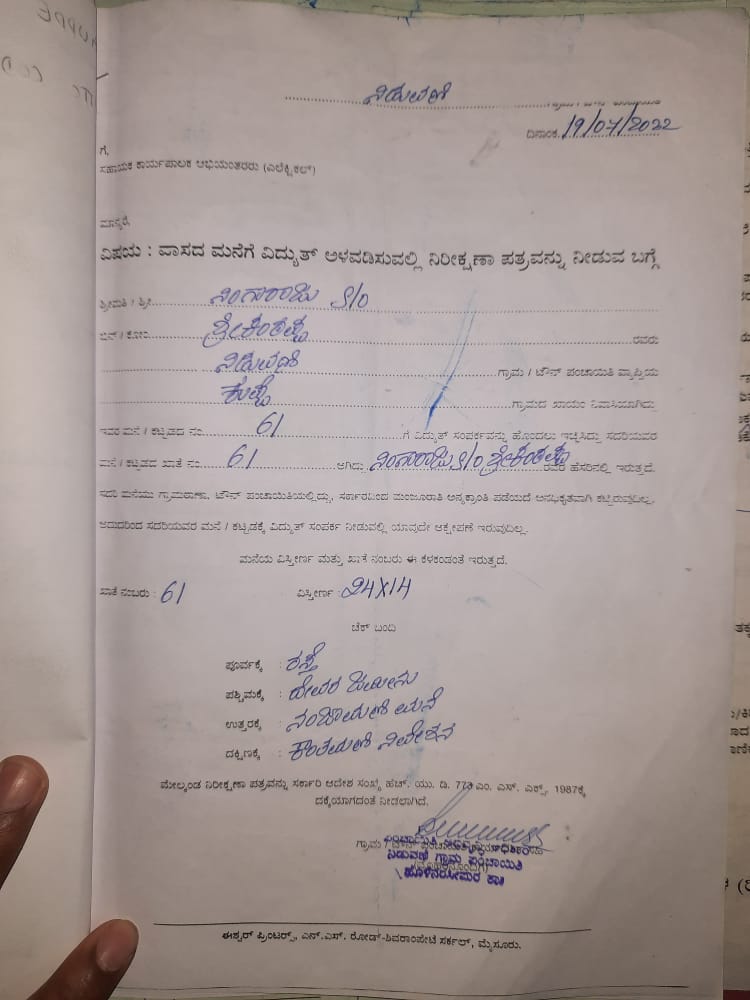 ನಿಡುವಣಿ
ದಿನಾಂಕ. 19/07/2022
ಗೆ,
ಸಹಾಯಕ ಕಾರ್ಯಪಾಲಕ ಅಭಿಯಂತರರು (ಎಲೆಕ್ಟ್ರಿಕಲ್)
ಮಾನ್ಯರೆ,
ವಿಷಯ : ವಾಸದ ಮನೆಗೆ ವಿದ್ಯುತ್ ಅಳವಡಿಸುವಲ್ಲಿ ನಿರೀಕ್ಷಣಾ ಪತ್ರವನ್ನು ನೀಡುವ ಬಗ್ಗೆ
ಶ್ರೀಮತಿ / ಶ್ರೀ. ನಿಂಗರಾಜು S/o
ಬಿನ್ / ಕೋಂ. ಶ್ರೀಕಂಠಪ್ಪ ರವರು
ನಿಡುವಣಿ ಗ್ರಾಮ / ಟೌನ್ ಪಂಚಾಯಿತಿ ವ್ಯಾಪ್ತಿಯ
ಗ್ರಾಮದ ಖಾಯಂ ನಿವಾಸಿಯಾಗಿದ್ದು
ಇವರ ಮನೆ / ಕಟ್ಟಡದ ನಂ. 61 ಗೆ ವಿದ್ಯುತ್ ಸಂಪರ್ಕವನ್ನು ಹೊಂದಲು ಇಚ್ಛಿಸಿದ್ದು ಸದರಿಯವರ
ಮನೆ / ಕಟ್ಟಡದ ಖಾತೆ ನಂ. 61 ಆಗಿದ್ದು ನಿಂಗರಾಜು S/o ಶ್ರೀಕಂಠಪ್ಪ ರವರ ಹೆಸರಿನಲ್ಲಿ ಇರುತ್ತದೆ.
ಸದರಿ ಮನೆಯು ಗ್ರಾಮಠಾಣಾ, ಟೌನ್ ಪಂಚಾಯಿತಿಯಲ್ಲಿದ್ದು, ಸರ್ಕಾರದಿಂದ ಮಂಜೂರಾತಿ ಅನ್ಯಕ್ರಾಂತಿ ಪಡೆಯದೆ ಅನಧಿಕೃತವಾಗಿ ಕಟ್ಟಿರುವುದಿಲ್ಲ.
ಆದುದರಿಂದ ಸದರಿಯವರ ಮನೆ / ಕಟ್ಟಡಕ್ಕೆ ವಿದ್ಯುತ್ ಸಂಪರ್ಕ ನೀಡುವಲ್ಲಿ ಯಾವುದೇ ಆಕ್ಷೇಪಣೆ ಇರುವುದಿಲ್ಲ.
ಮನೆಯ ವಿಸ್ತೀರ್ಣ ಮತ್ತು ಖಾತೆ ನಂಬರು ಈ ಕೆಳಕಂಡಂತೆ ಇರುತ್ತದೆ.
ಖಾತೆ ನಂಬರು : 61 ವಿಸ್ತೀರ್ಣ : 24X14
ಚೆಕ್ ಬಂದಿ
ಪೂರ್ವಕ್ಕೆ : ರಸ್ತೆ
ಪಶ್ಚಿಮಕ್ಕೆ : ದೇವರ ಜಮೀನು
ಉತ್ತರಕ್ಕೆ : ನಂಜಾಮಣಿ ಮನೆ
ದಕ್ಷಿಣಕ್ಕೆ : ಕಾಂತಮಣಿ ನಿವೇಶನ
ಮೇಲ್ಕಂಡ ನಿರೀಕ್ಷಣಾ ಪತ್ರವನ್ನು ಸರ್ಕಾರಿ ಆದೇಶ ಸಂಖ್ಯೆ ಹೆಚ್. ಯು. ಡಿ. 773 ಎಂ. ಎಸ್. ಎಕ್ಸ್, 1987ಕ್ಕೆ
ದಕ್ಕೆಯಾಗದಂತೆ ನೀಡಲಾಗಿದೆ.
ನಿಡುವಣಿ ಗ್ರಾಮ ಪಂಚಾಯಿತಿ
ಹೊಳೆನರಸೀಪುರ ತಾ||
ಈಶ್ವರ್ ಪ್ರಿಂಟರ್ಸ್, ಎನ್.ಎಸ್. ರೋಡ್-ಶಿವರಾಂಪೇಟೆ ಸರ್ಕಲ್, ಮೈಸೂರು.